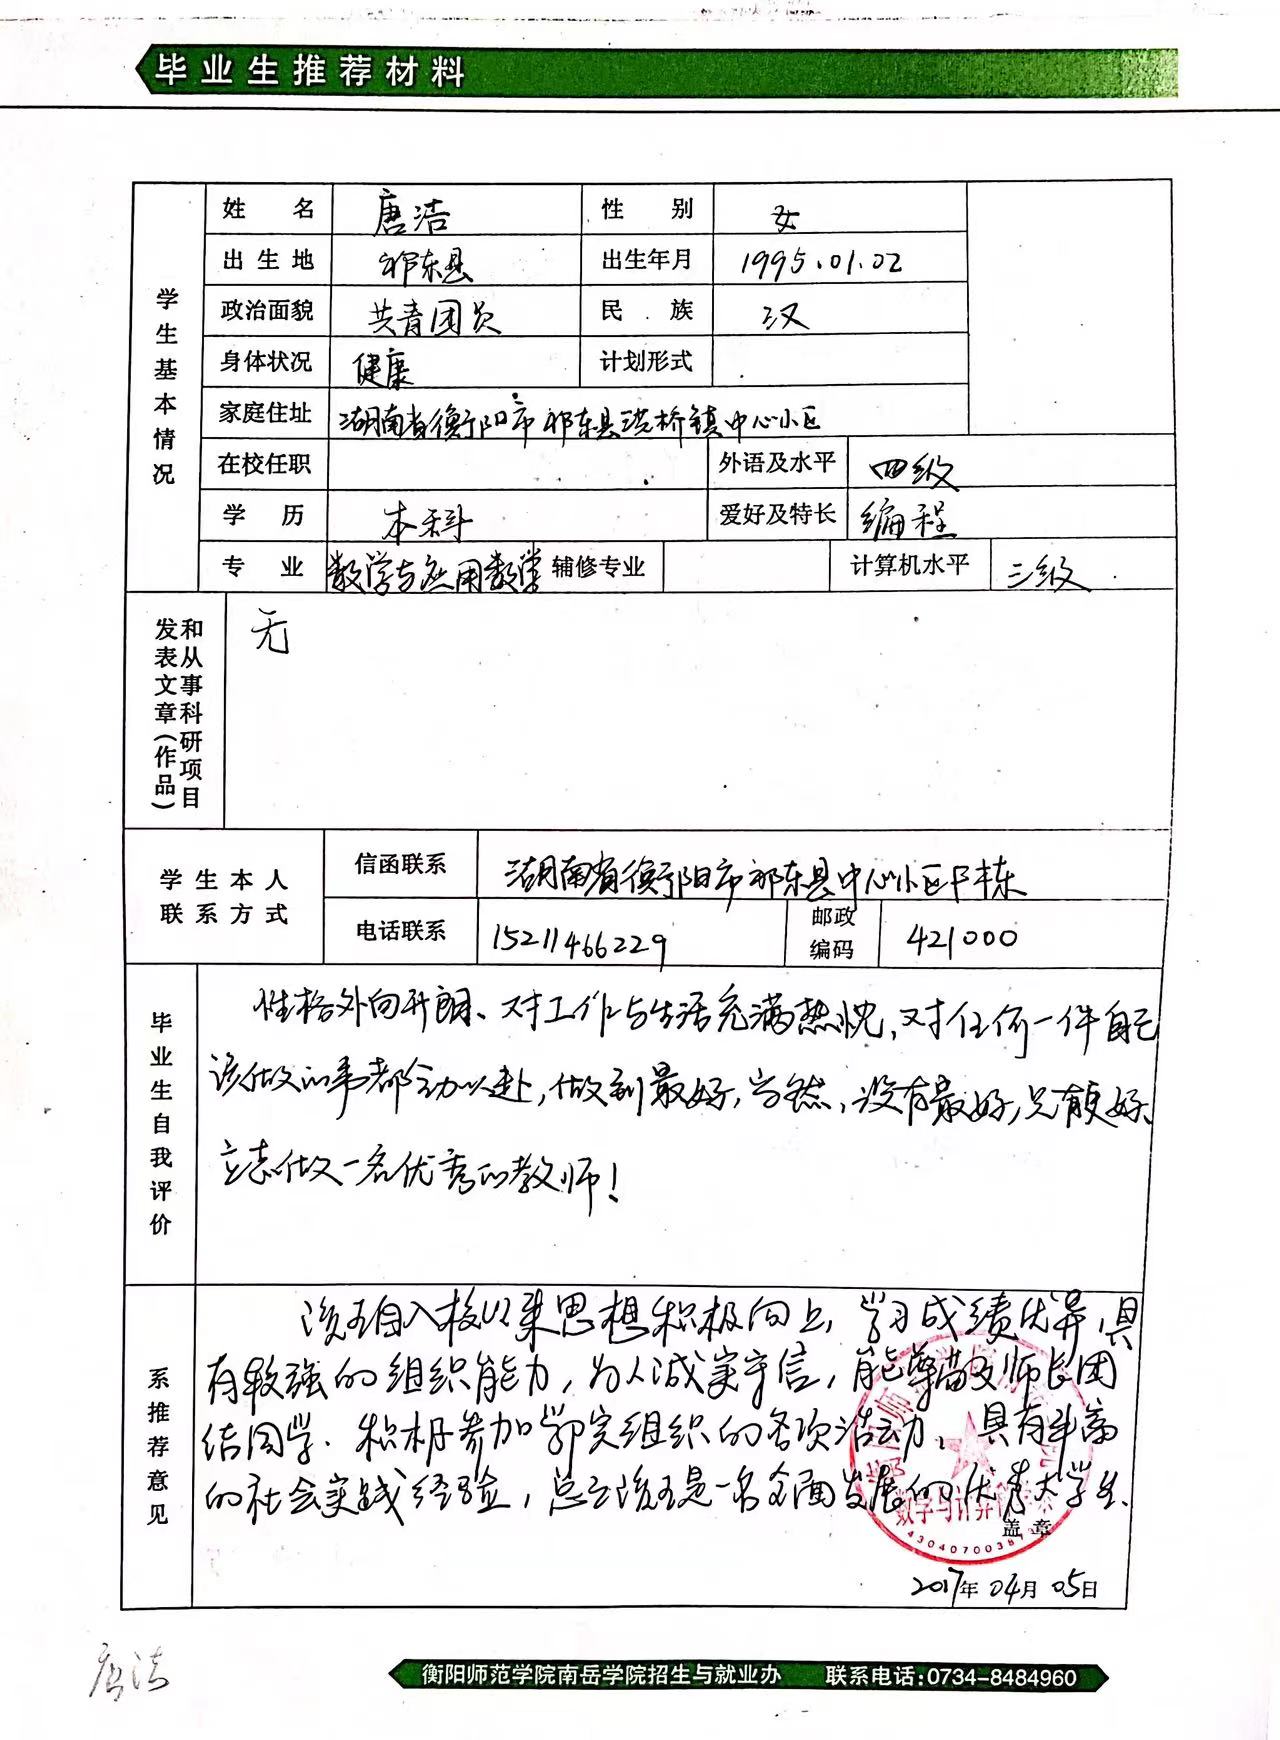 毕业生推荐材料
学生基本情况
姓名 唐洁 性别 女
出生地 祁东县 出生年月 1995.01.02
政治面貌 共青团员 民族 汉
身体状况 健康 计划形式
家庭住址 湖南省衡阳市祁东县洪桥镇中心小区
在校任职 外语及水平 四级
学历 本科 爱好及特长 编程
专业 数学与应用数学 辅修专业 计算机水平 三级
发表文章(作品)
和从事科研项目
无
学生本人
联系方式
信函联系 湖南省衡阳市祁东县中心小区F栋
电话联系 15211466229 邮政编码 421000
毕业生自我评价
性格外向开朗、对工作与生活充满热忱,对任何一件自己
该做的事都全力以赴,做到最好,当然,没有最好,只有更好、
立志做一名优秀的教师!
系推荐意见
该生自入校以来思想积极向上,学习成绩优异,具
有较强的组织能力,为人诚实守信,能尊敬师长团
结同学.积极参加学院组织的各项活动、具有丰富
的社会实践经验,总之该生是一名全面发展的优秀大学生.
数学与计算
盖章
2017年04月05日
唐洁
衡阳师范学院南岳学院招生与就业办 联系电话:0734-8484960